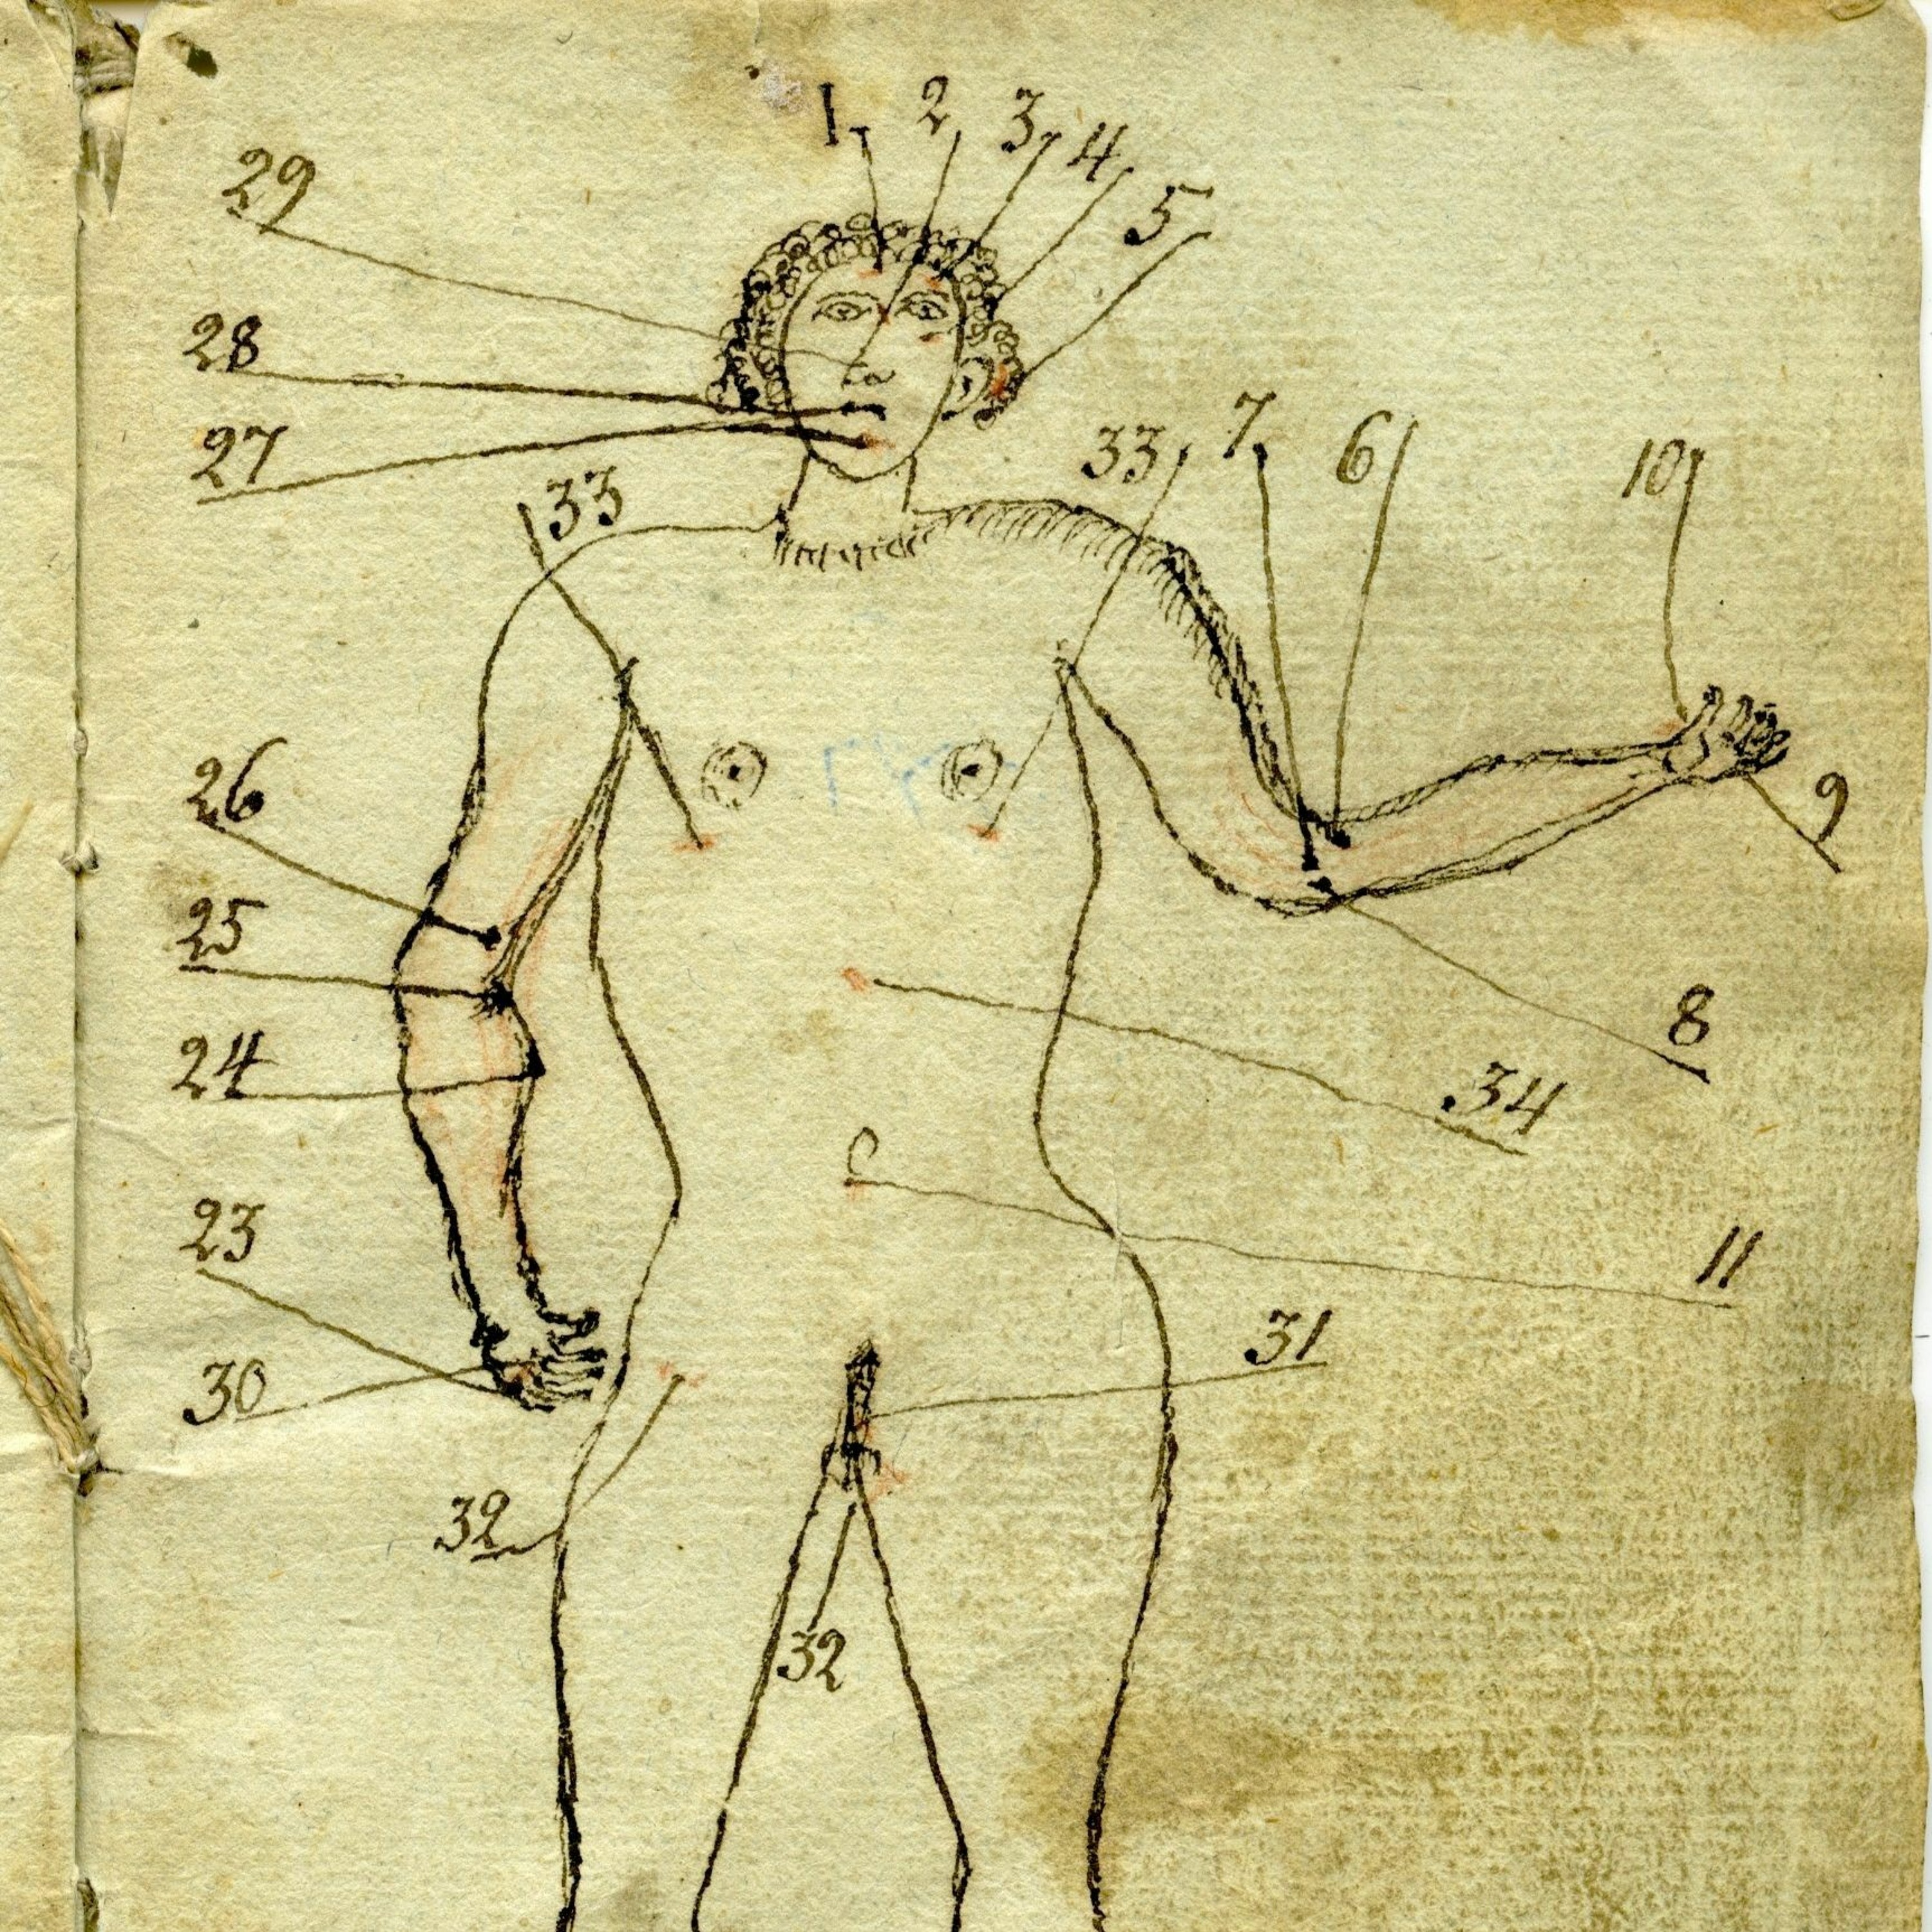 1 2 3 4 5
29
28
27
33
33 7 6 10
26
9
25
8
24
34
23
11
31
30
32
32